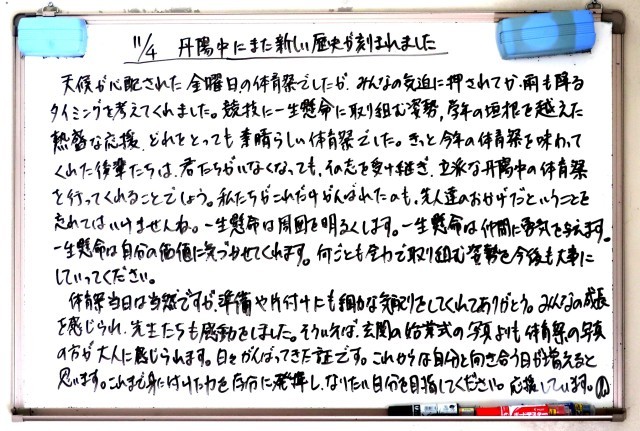 11/4 丹陽中にまた新しい歴史が刻まれました
天候が心配された金曜日の体育祭でしたが、みんなの気迫に押されてか、雨も降る
タイミングを考えてくれました。競技に一生懸命に取り組む姿勢、学年の垣根を越えた
熱い応援、どれをとっても素晴らしい体育祭でした。きっと今年の体育祭を味わって
くれた後輩たちは、君たちがいなくなっても、その志を受け継ぎ、立派な丹陽中の体育祭
を行ってくれることでしょう。私たちがこれだけがんばれたのも、先人達のおかげだということを
忘れてはいけませんね。一生懸命は周囲を明るくします。一生懸命は仲間に勇気を与えます。
一生懸命は自分の価値に気づかせてくれます。何ごとも全力で取り組む姿勢を今後も大事に
していってください。
体育祭当日は当然ですが、準備や片付けにも細かな気配りをしてくれてありがとう。みんなの成長
を感じられ、先生たちも感動をしました。そういえば、玄関の始業式の写真よりも体育祭の写真
の方が大人に感じられます。日々がんばってきた証です。これからは自分と向き合う日が増えると
思います。これまで身に付けた力を存分に発揮し、なりたい自分を目指してください。応援しています。